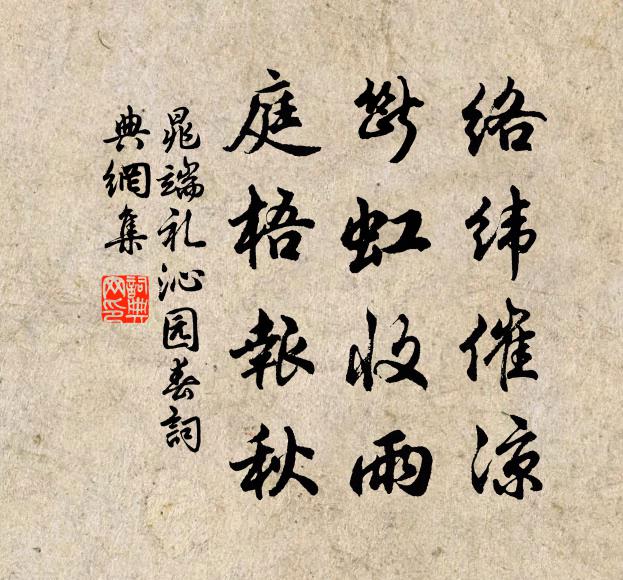 络纬催凉
断虹收雨
庭梧報秋
晁端礼沁园春詞
典網集
詞典
网印